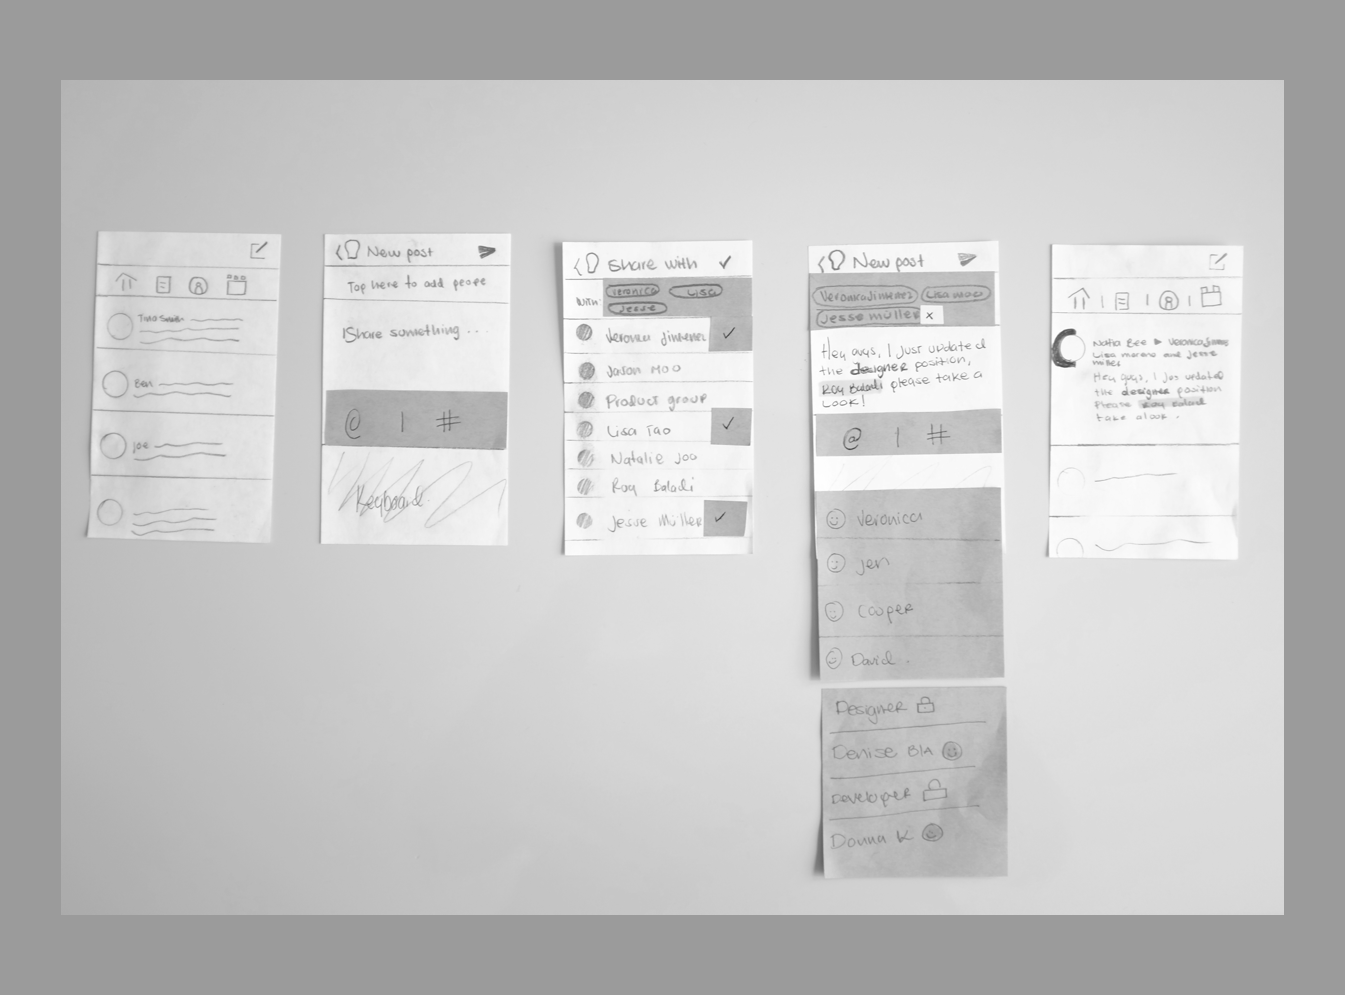 Timo Smith
Ben
Joe
New post
Tap here to add peope
Share something ...
@ | #
Keyboard
Share with
WITH:
Veronica
Lisa
Jesse
Veronica Jimenez
Jason Moo
Product group
Lisa Tao
Natalie Joo
Roy Baladi
Jesse Müller
New post
Veronica Jimenez
Lisa moo
Jesse müller x
Hey guys, I just updated
the designer position,
Roy Baladi please take a
Look!
@ | #
Veronica
Jen
Cooper
David.
Designer
Denise BIA
Developer
Donna K
Natia Bee ▶ Veronica Jimenez
Lisa moreno and Jesse
miller
Hey guys, I jus updated
the designer position
Please Roy Baladi
take a look.